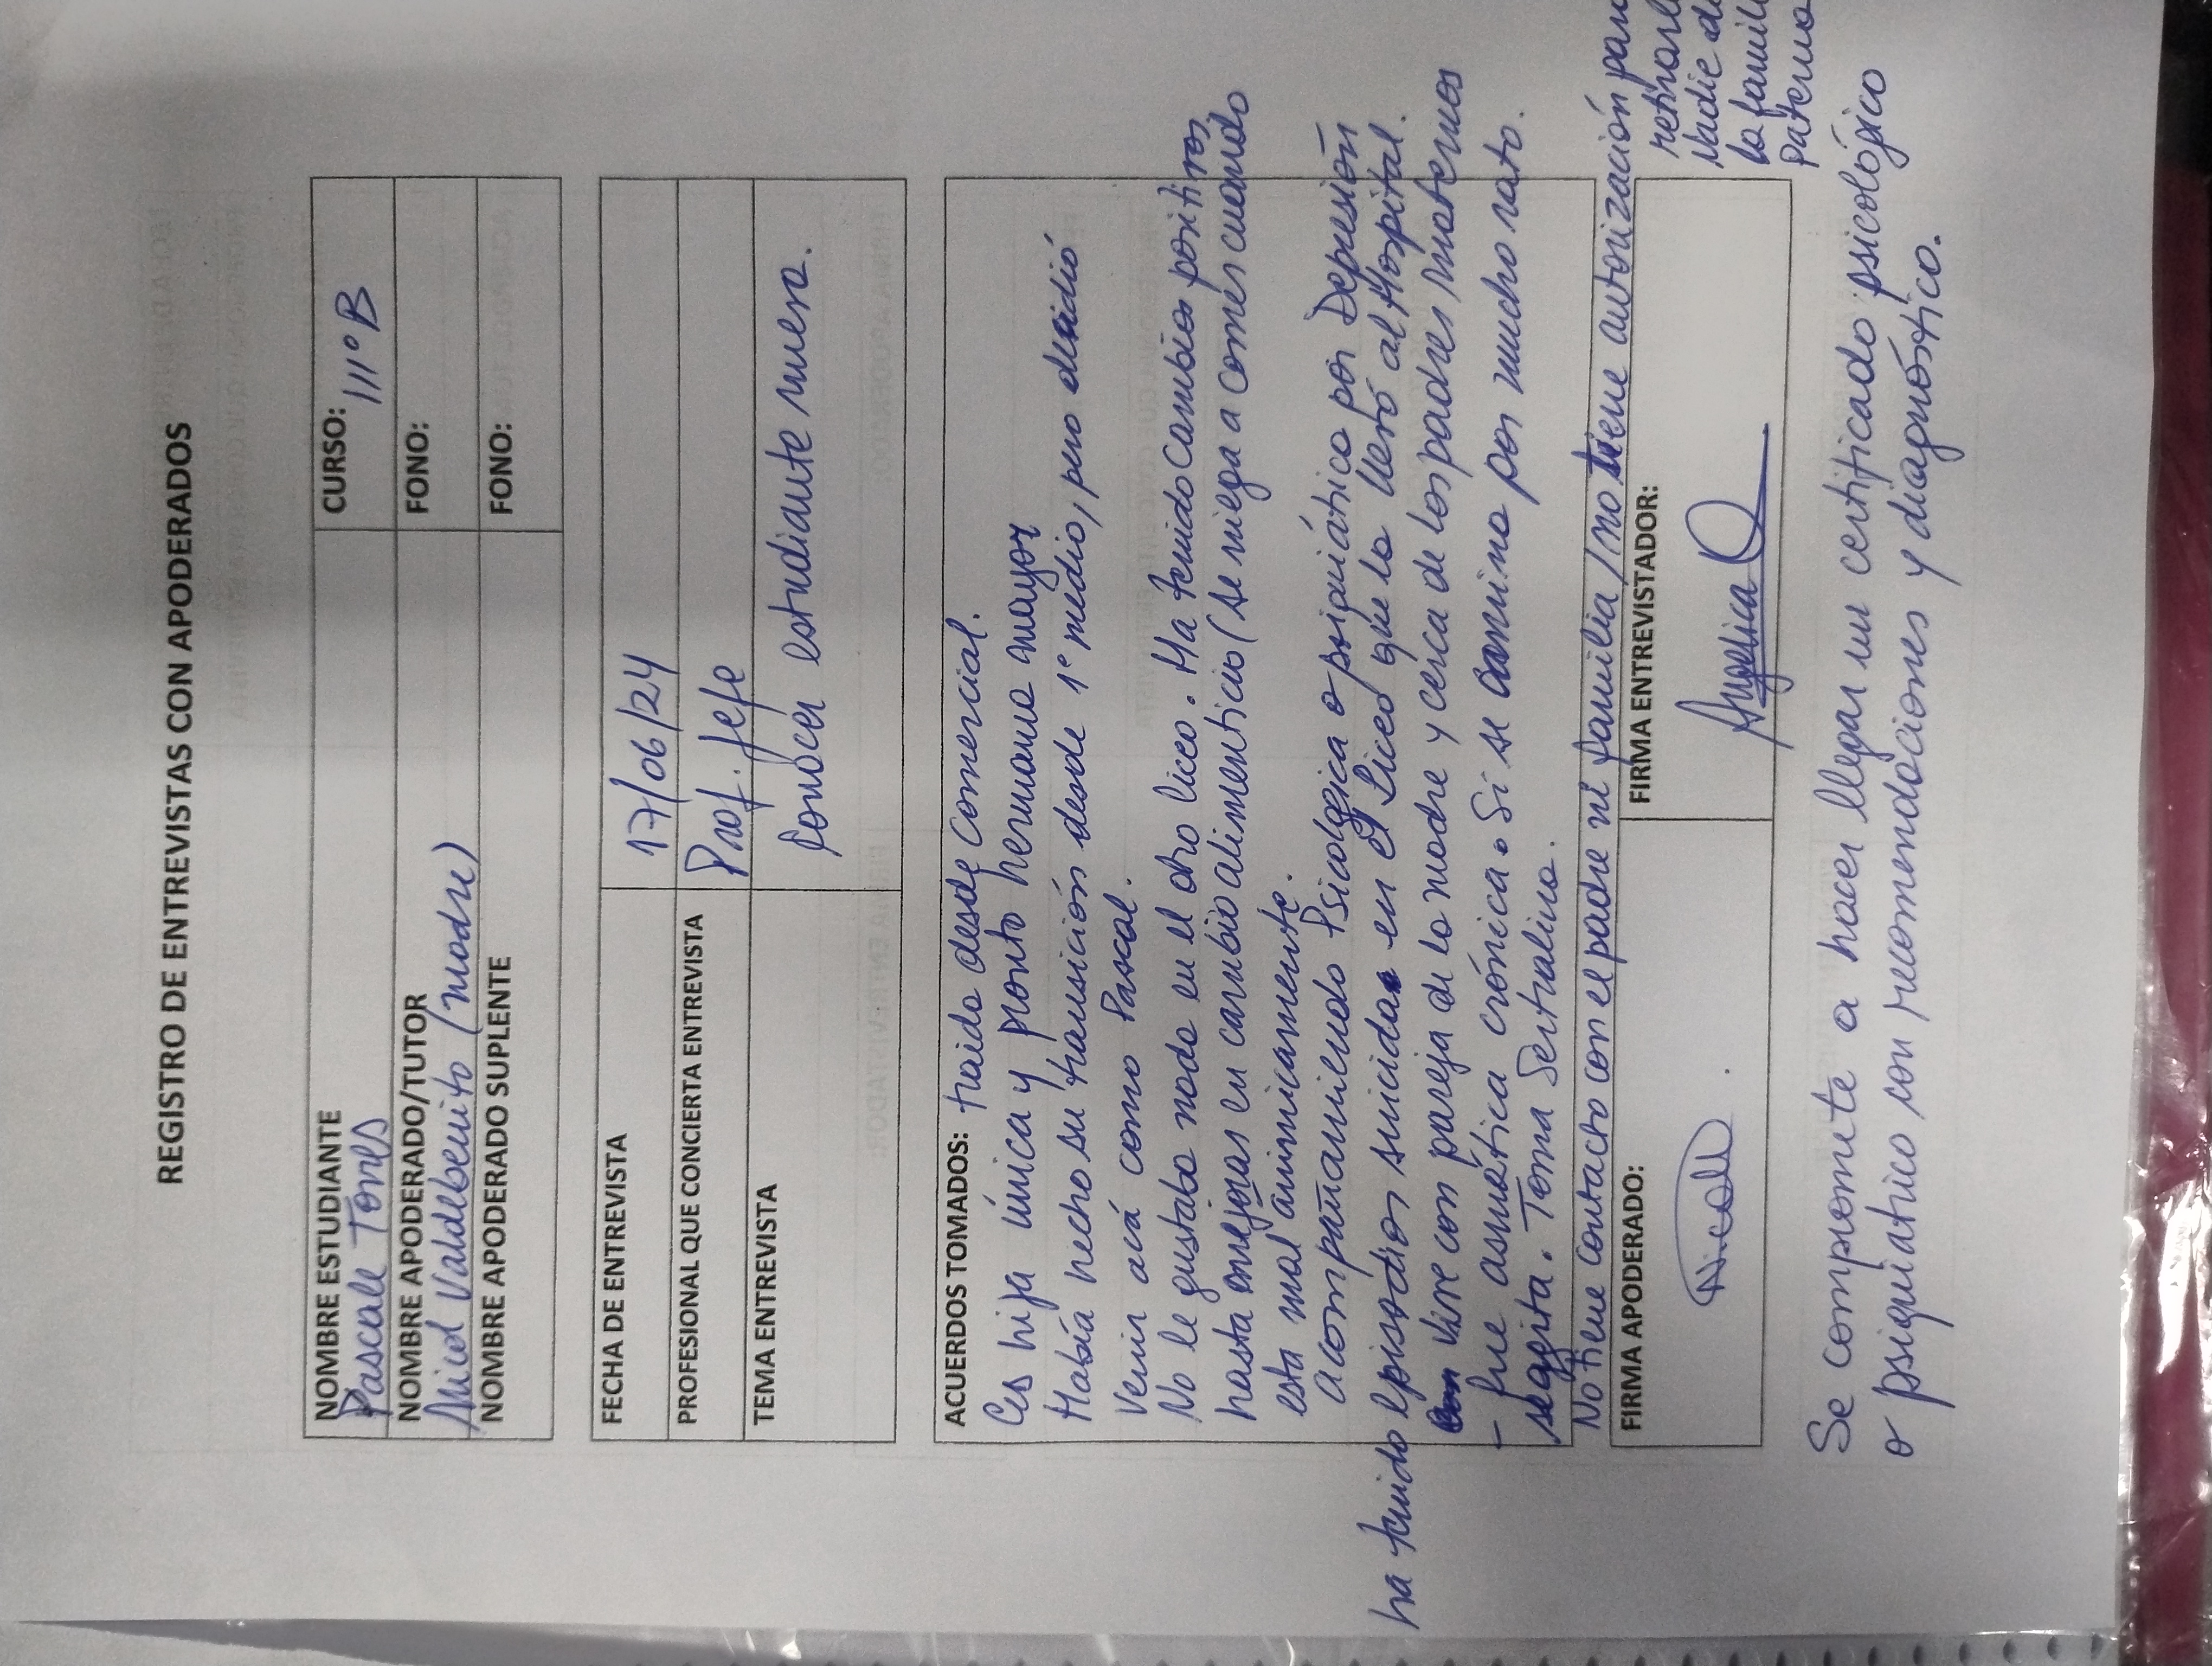 REGISTRO DE ENTREVISTAS CON APODERADOS
NOMBRE ESTUDIANTE CURSO: IIIº B
Pascale Torres
NOMBRE APODERADO/TUTOR FONO:
Nicol Valdebenito (madre)
NOMBRE APODERADO SUPLENTE FONO:
FECHA DE ENTREVISTA 17/06/24
PROFESIONAL QUE CONCIERTA ENTREVISTA Prof. Jefe
TEMA ENTREVISTA Conocer estudiante nuera.
ACUERDOS TOMADOS: traida desde Comercial.
Es hija única y pronto hermana mayor
Había hecho su transición desde 1º medio, pero decidió
venir acá como Pascal.
No le gustaba nada en el otro liceo. Ha tenido cambios positivos,
hasta mejoras en cambio alimenticio (se niega a comer cuando
esta mal animicamente.
acompañamiento Psicologica o psiquiátrico por Depresión
ha tenido episodios suicidas en el Liceo que la llevó al Hospital.
Vive con pareja de la madre y cerca de los padres maternos
- fue asmática crónica. Si se camina por mucho rato.
se agita. Toma Sertralina.
No tiene contacto con el padre ni familia / no tiene autorización para
retirarla
nadie de
la famili
paterna
FIRMA APODERADO: FIRMA ENTREVISTADOR:
Nicoll Angelica
Se compromete a hacer llegar un certificado psicológico
o psiquiatrico con recomendaciones y diagnóstico.